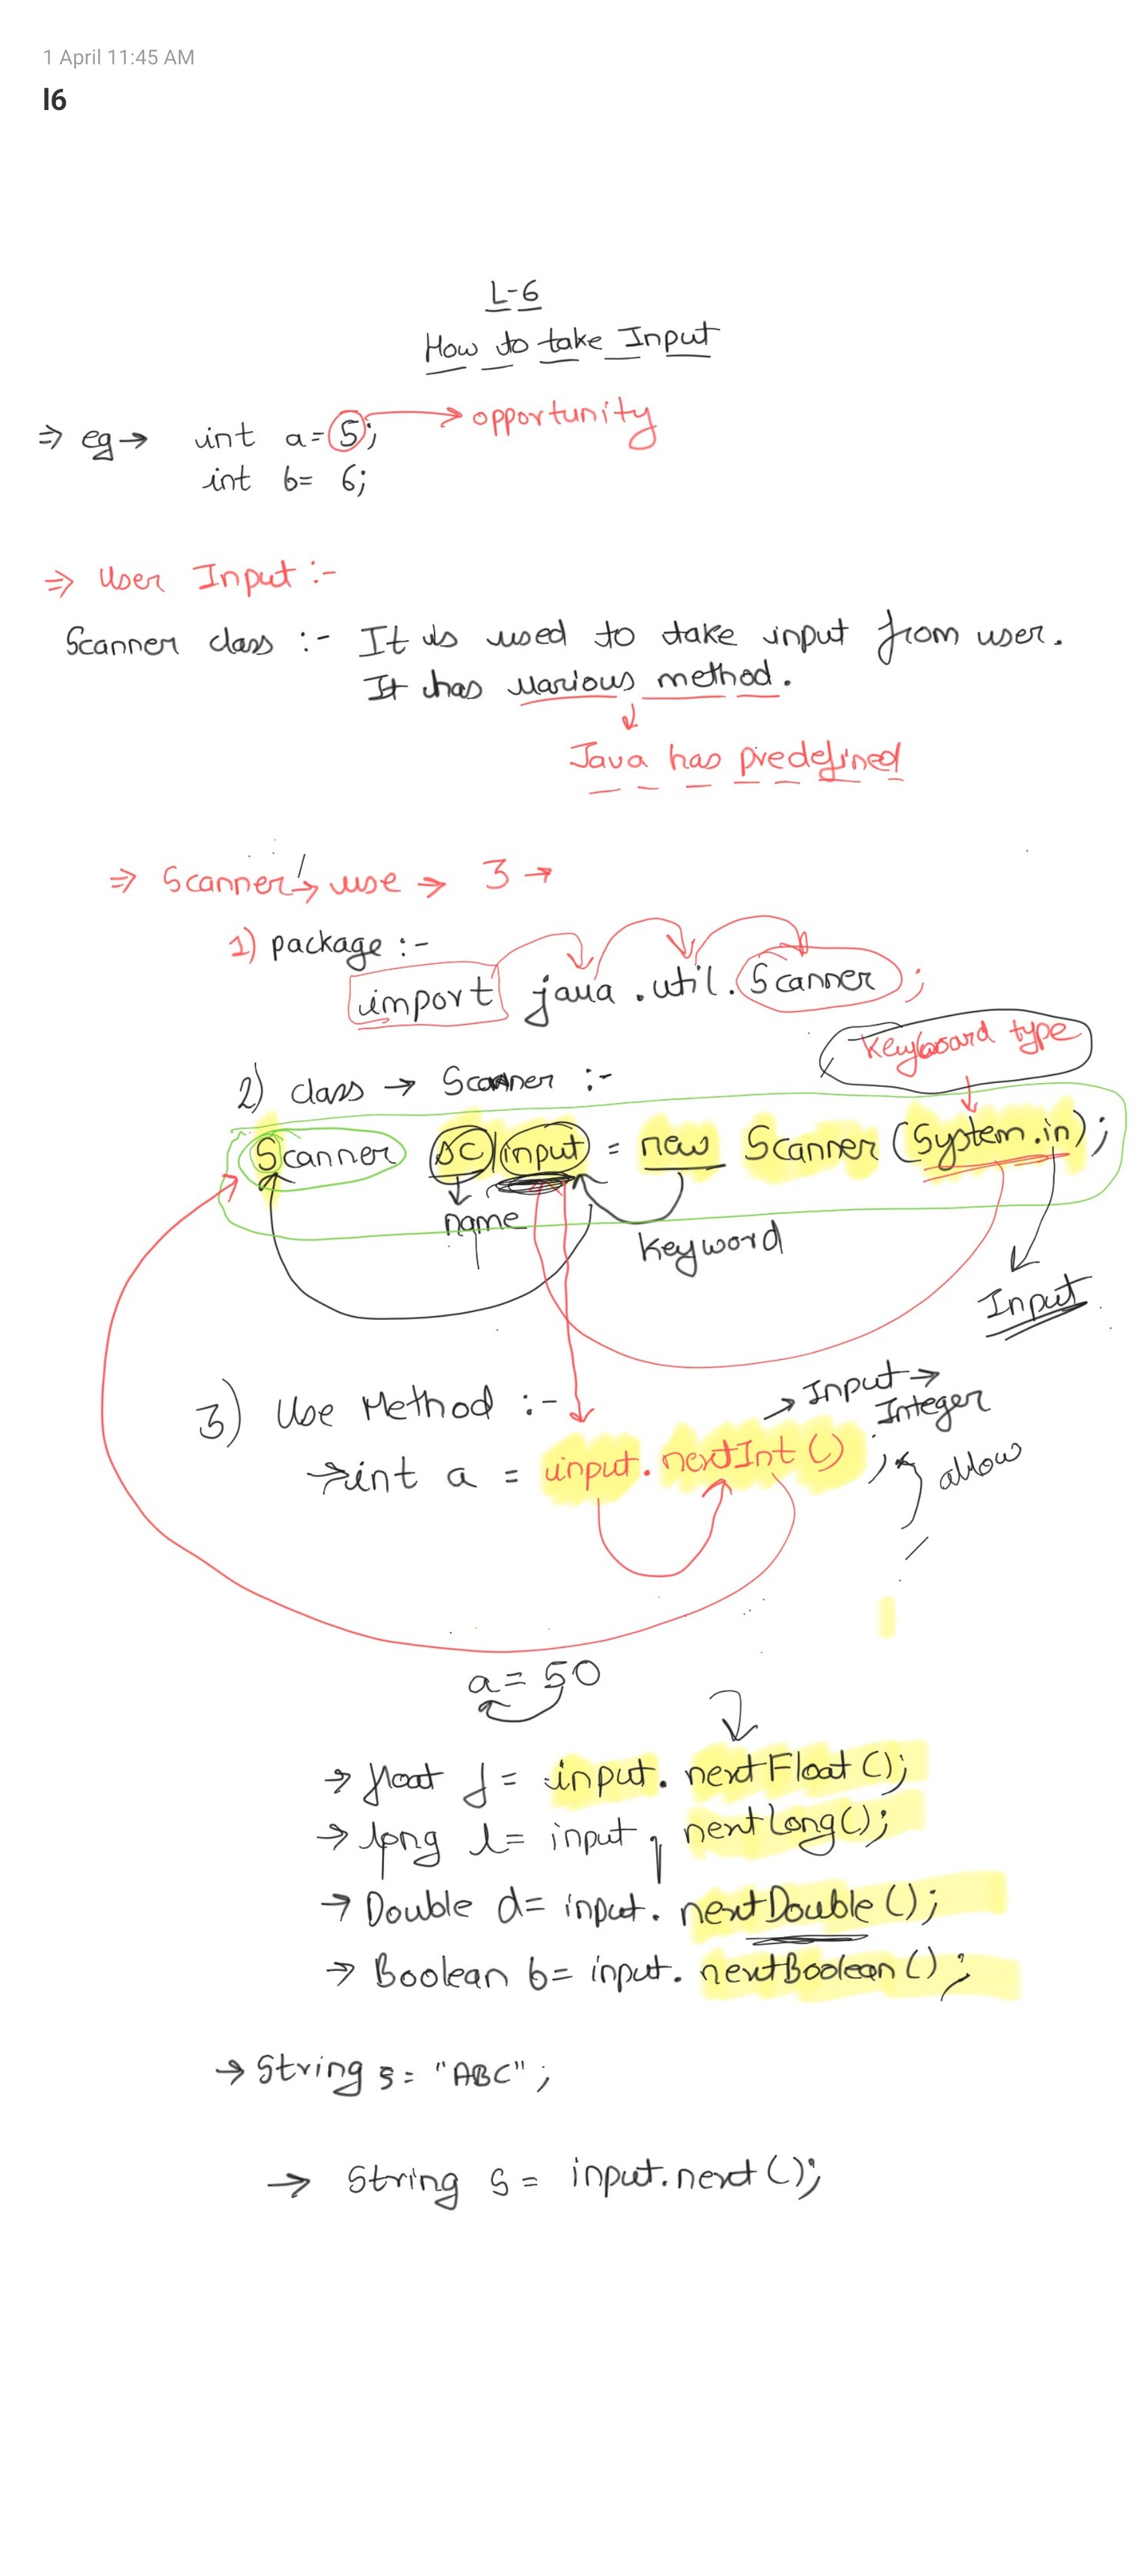 1 April 11:45 AM
l6
L-6
How to take Input
⇒ eg → int a = 5; → opportunity
int b = 6;
⇒ User Input :-
Scanner class :- It is used to take input from user.
It has various method.
Java has predefined
⇒ Scanner → use → 3 →
1) package :-
import java.util.Scanner;
Keyboard type
2) class → Scanner :-
Scanner SC/input = new Scanner (System.in);
name
Keyword
Input
3) Use Method :-
→ Input →
Integer
→ int a = input.nextInt();
allow
a = 50
→ float f = input.nextFloat();
→ long l = input.nextLong();
→ Double d = input.nextDouble();
→ Boolean b = input.nextBoolean();
→ String s = "ABC";
→ String s = input.next();